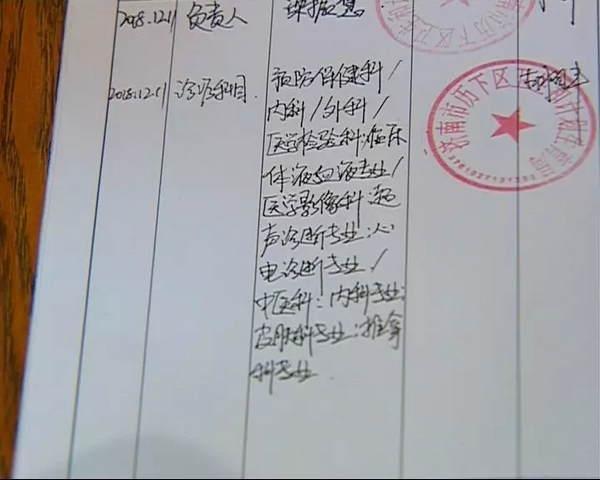 2018.12.11 负责人
2018.12.11 诊疗科目
预防保健科/
内科/外科/
医学检验科:临床
体液血液专业/
医学影像科:超
声诊断专业:心
电诊断专业/
中医科:内科专业;
皮肤科专业;推拿
科专业
济南市历下区
计划生育局